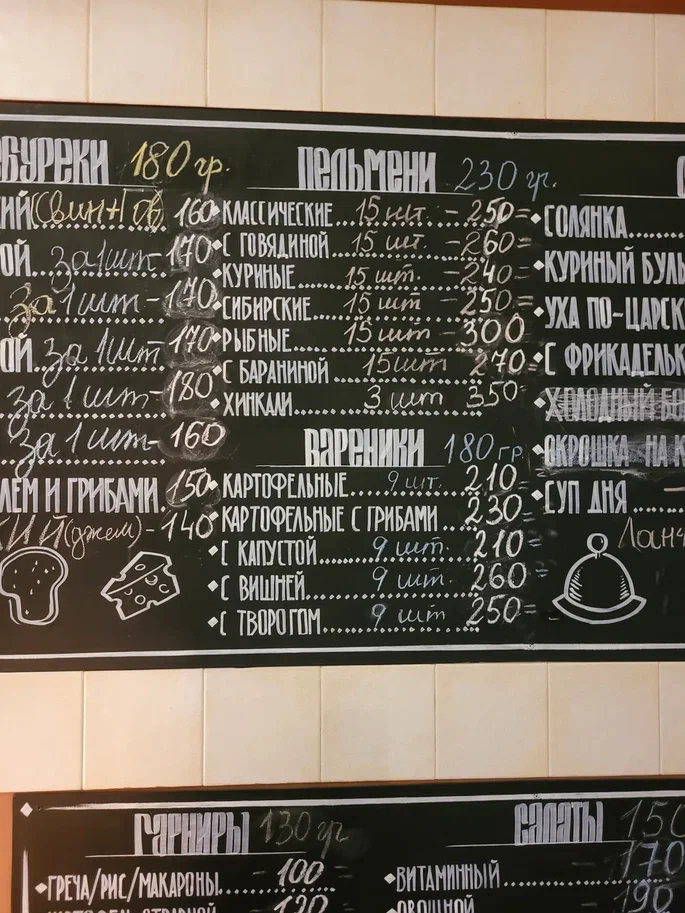 БУРЕКИ 180 гр.
КИЙ (Свин+Гов) 160
ОЙ за 1 шт - 170
за 1 шт - 170
ОЙ за 1 шт - 170
за 1 шт - 180
за 1 шт - 160
ЛЕМ И ГРИБАМИ 150
(джем) - 140
ПЕЛЬМЕНИ 230 гр.
КЛАССИЧЕСКИЕ 15 шт. - 250=
С ГОВЯДИНОЙ 15 шт. - 260=
КУРИНЫЕ 15 шт. - 240=
СИБИРСКИЕ 15 шт - 250=
РЫБНЫЕ 15 шт - 300
С БАРАНИНОЙ 15 шт 270
ХИНКАЛИ 3 шт 350
ВАРЕНИКИ 180 гр.
КАРТОФЕЛЬНЫЕ 9 шт. 210=
КАРТОФЕЛЬНЫЕ С ГРИБАМИ 230=
С КАПУСТОЙ 9 шт. 210=
С ВИШНЕЙ 9 шт. 260=
С ТВОРОГОМ 9 шт 250=
СОЛЯНКА
КУРИНЫЙ БУЛЬ
УХА ПО-ЦАРСК
С ФРИКАДЕЛЬК
ХОЛОДНЫЙ БО
ОКРОШКА НА К
СУП ДНЯ -
Ланч
ГАРНИРЫ 130 гр
ГРЕЧА/РИС/МАКАРОНЫ 100
120
САЛАТЫ 150
ВИТАМИННЫЙ - 170
ОВОЩНОЙ 190